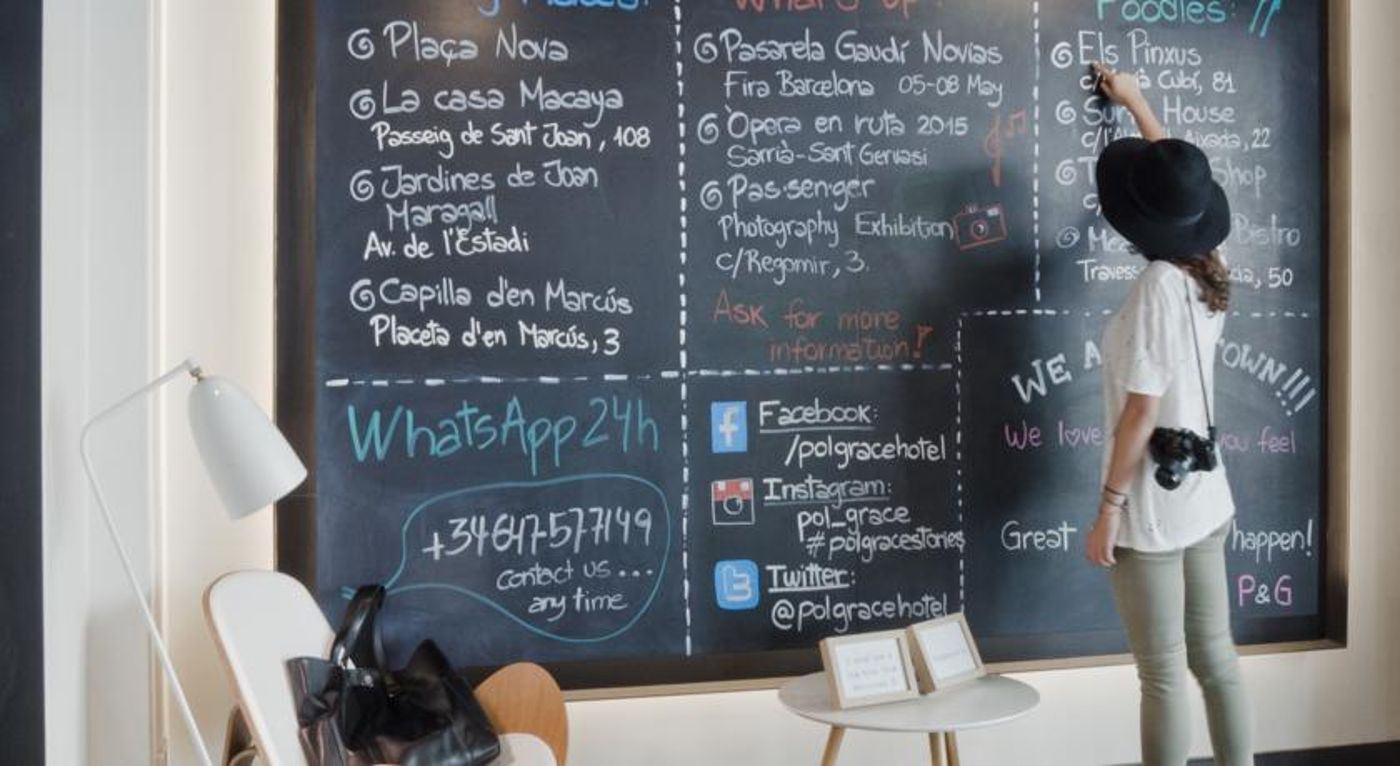 Plaça Nova
La casa Macaya
Passeig de Sant Joan, 108
Jardines de Joan
Maragall
Av. de l'Estadi
Capilla d'en Marcús
Placeta d'en Marcús, 3
What's up?
Pasarela Gaudí Novias
Fira Barcelona 05-08 May
Òpera en ruta 2015
Sarrià-Sant Gervasi
Pas·sen·ger
Photography Exhibition
c/Regomir, 3.
Ask for more
information!
Foodies:
Els Pinxus
Cubí, 81
House
22
Shop
Bistro
50
WhatsApp 24h
+34 647-577149
contact us...
any time
Facebook:
/polgracehotel
Instagram:
pol_grace
#polgracestories
Twitter:
@polgracehotel
WE
We love you feel
Great happen!
P&G